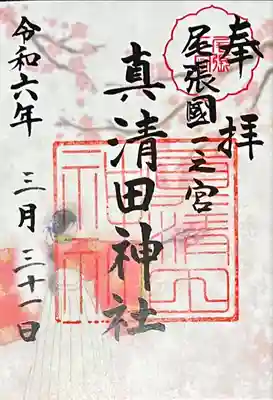 奉拝
尾張國一之宮
真清田神社
令和六年
三月三十一日